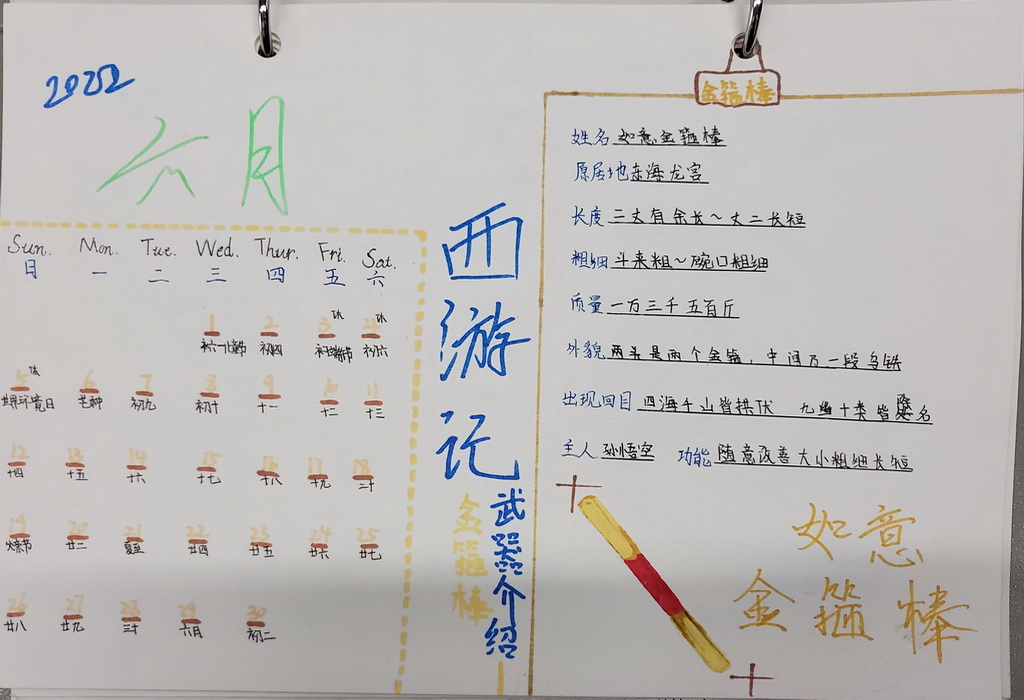 2022
六月
Sun. Mon. Tue. Wed. Thur. Fri. Sat.
日 一 二 三 四 五 六
1 2 3休 4休
初四 初六
5休 6 7 8 9 10 11
世界环境日 芒种 初九 初十 十一 十二 十三
12 13 14 15 16 17 18
十四 十五 十六 十七 十八 十九 二十
19 20 21 22 23 24 25
廿二 夏至 廿四 廿五 廿六 廿七
26 27 28 29 30
廿八 廿九 三十 六月 初二
西游记
武器介绍
金箍棒
金箍棒
姓名 如意金箍棒
原居地 东海龙宫
长度 三丈有余长~丈二长短
粗细 斗来粗~碗口粗细
质量 一万三千五百斤
外貌 两头是两个金箍，中间乃一段乌铁
出现回目 四海千山皆拱伏 九幽十类皆除名
主人 孙悟空 功能 随意改善大小粗细长短
如意
金箍棒